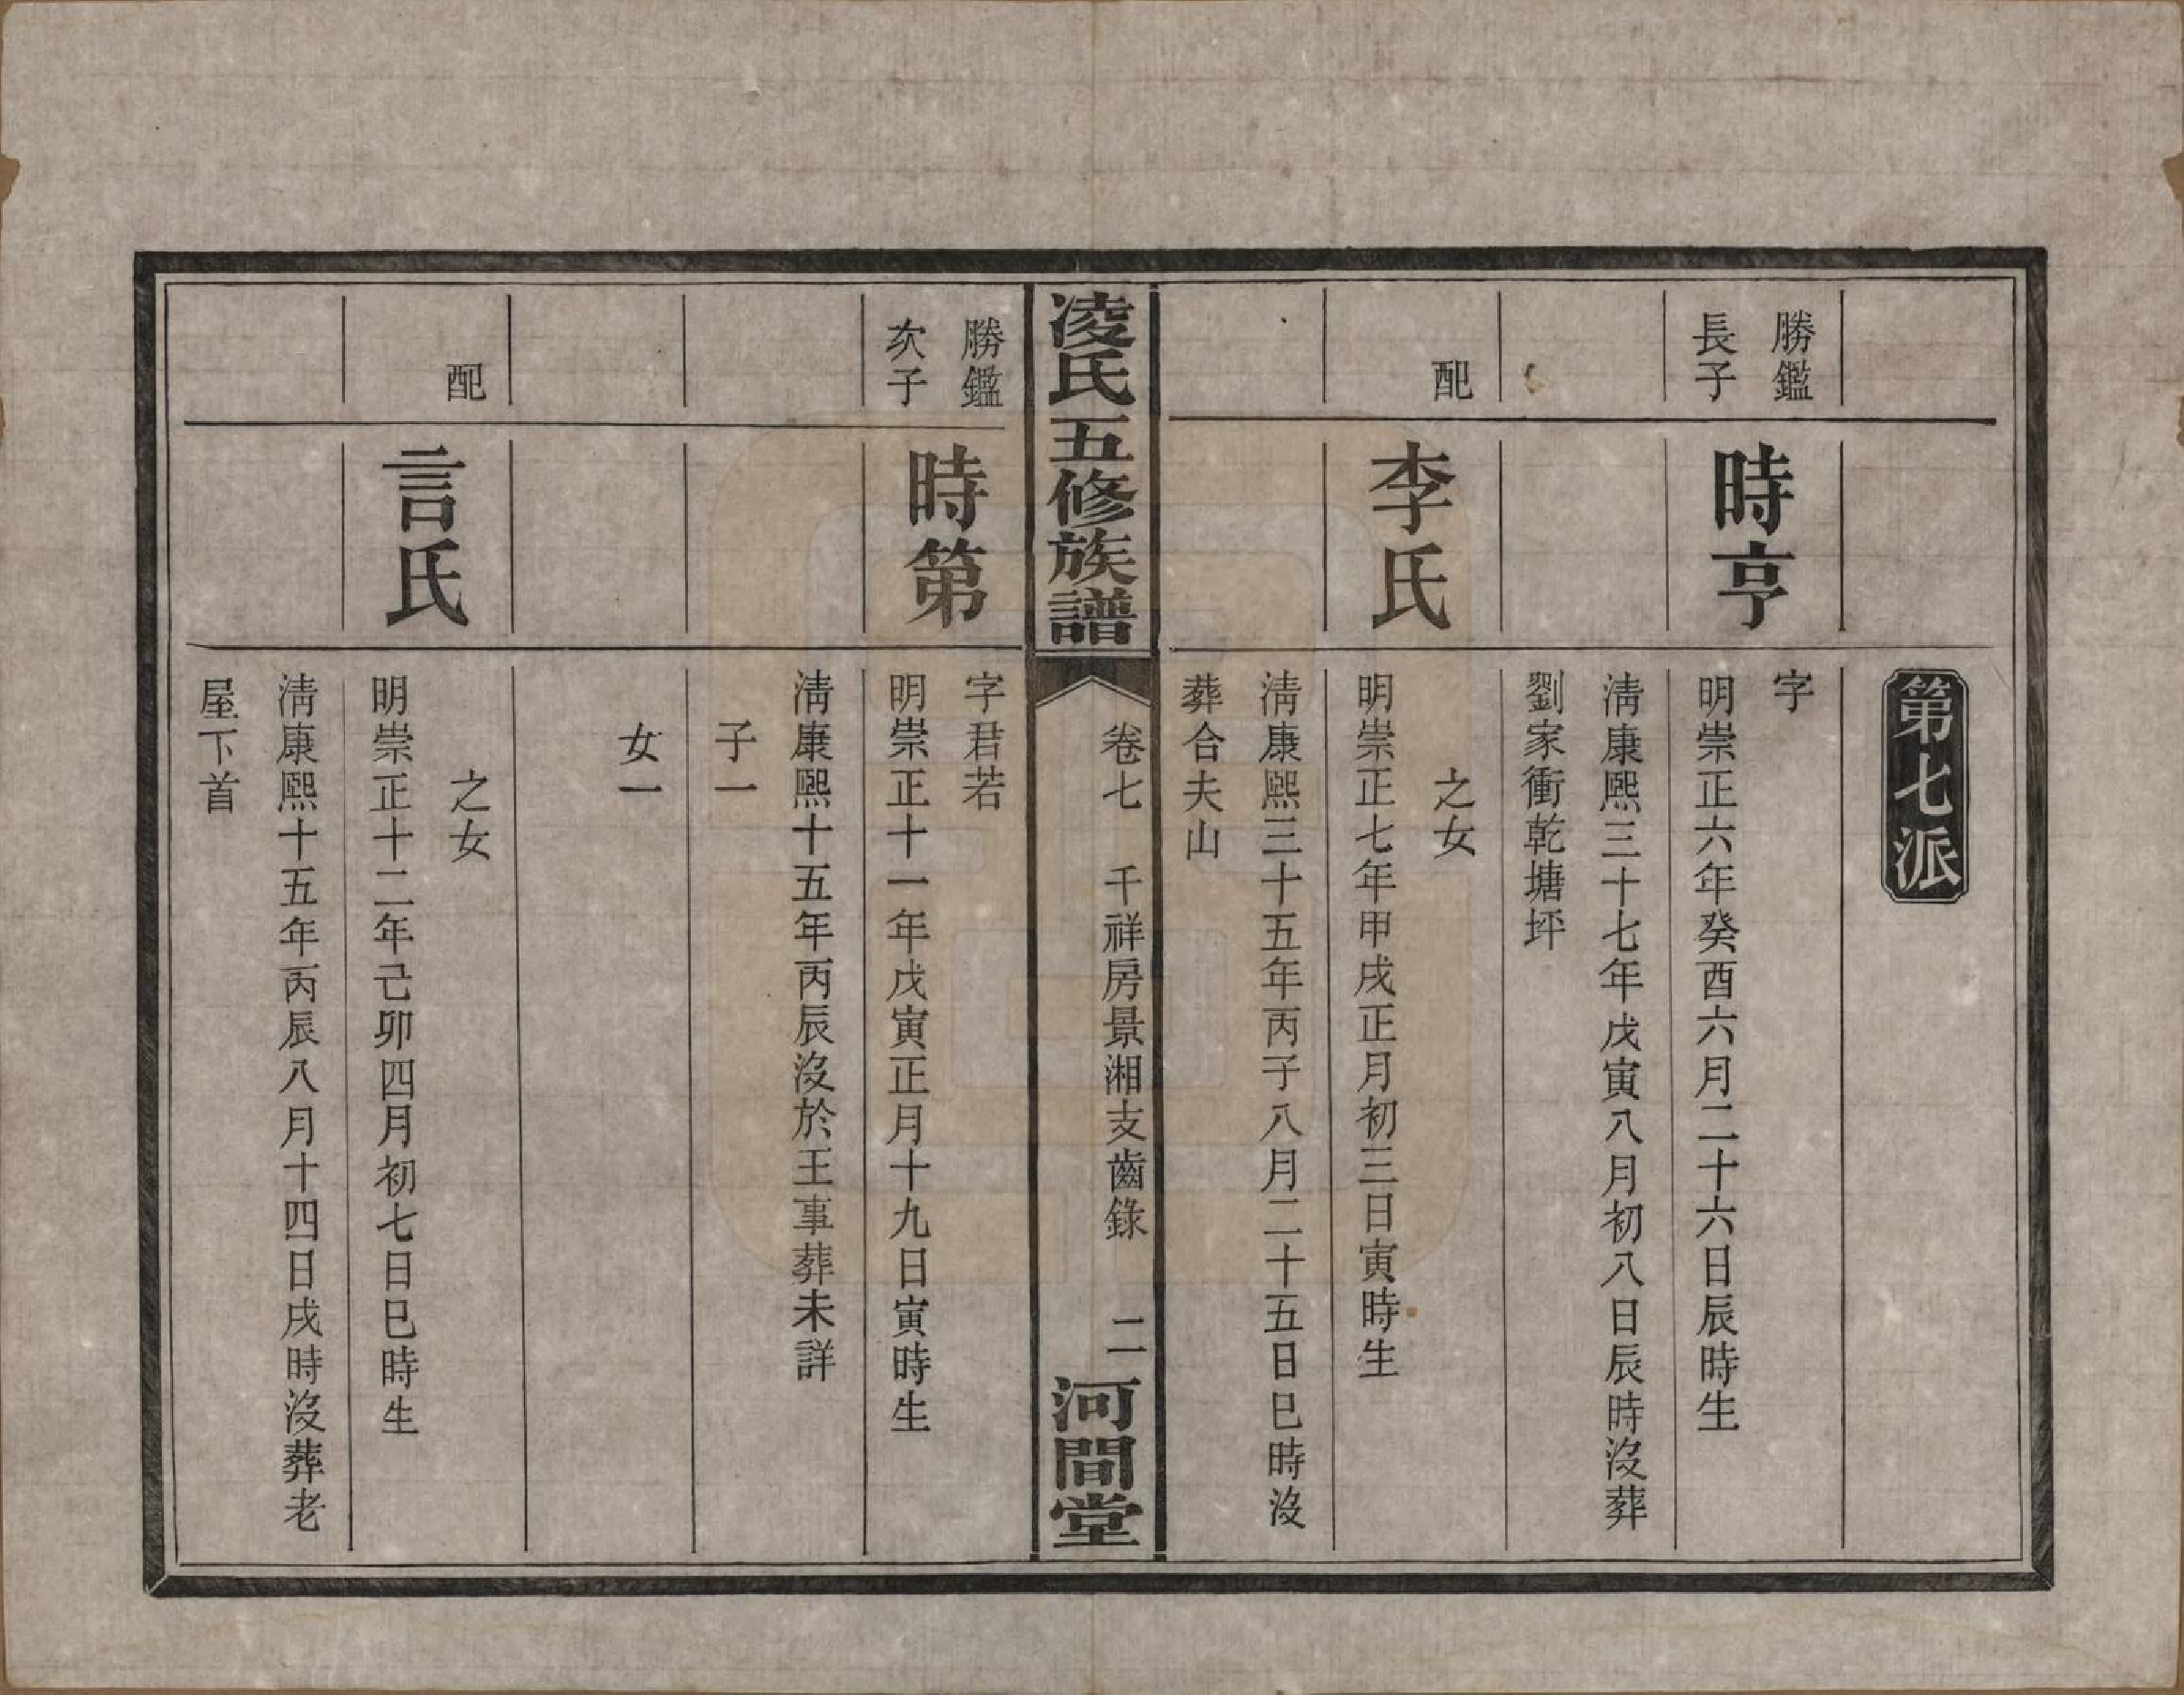 第七派
勝鑑
長子
時亨
字
明崇正六年癸酉六月二十六日辰時生
淸康熙三十七年戊寅八月初八日辰時沒葬
劉家衝乾塘坪
配
李氏
之女
明崇正七年甲戌正月初三日寅時生
淸康熙三十五年丙子八月二十五日巳時沒
葬合夫山
凌氏五修族譜
卷七 千祥房景湘支齒錄 二
河間堂
勝鑑
次子
時第
字君若
明崇正十一年戊寅正月十九日寅時生
淸康熙十五年丙辰沒於王事葬未詳
子一
女一
配
言氏
之女
明崇正十二年己卯四月初七日巳時生
淸康熙十五年丙辰八月十四日戌時沒葬老
屋下首